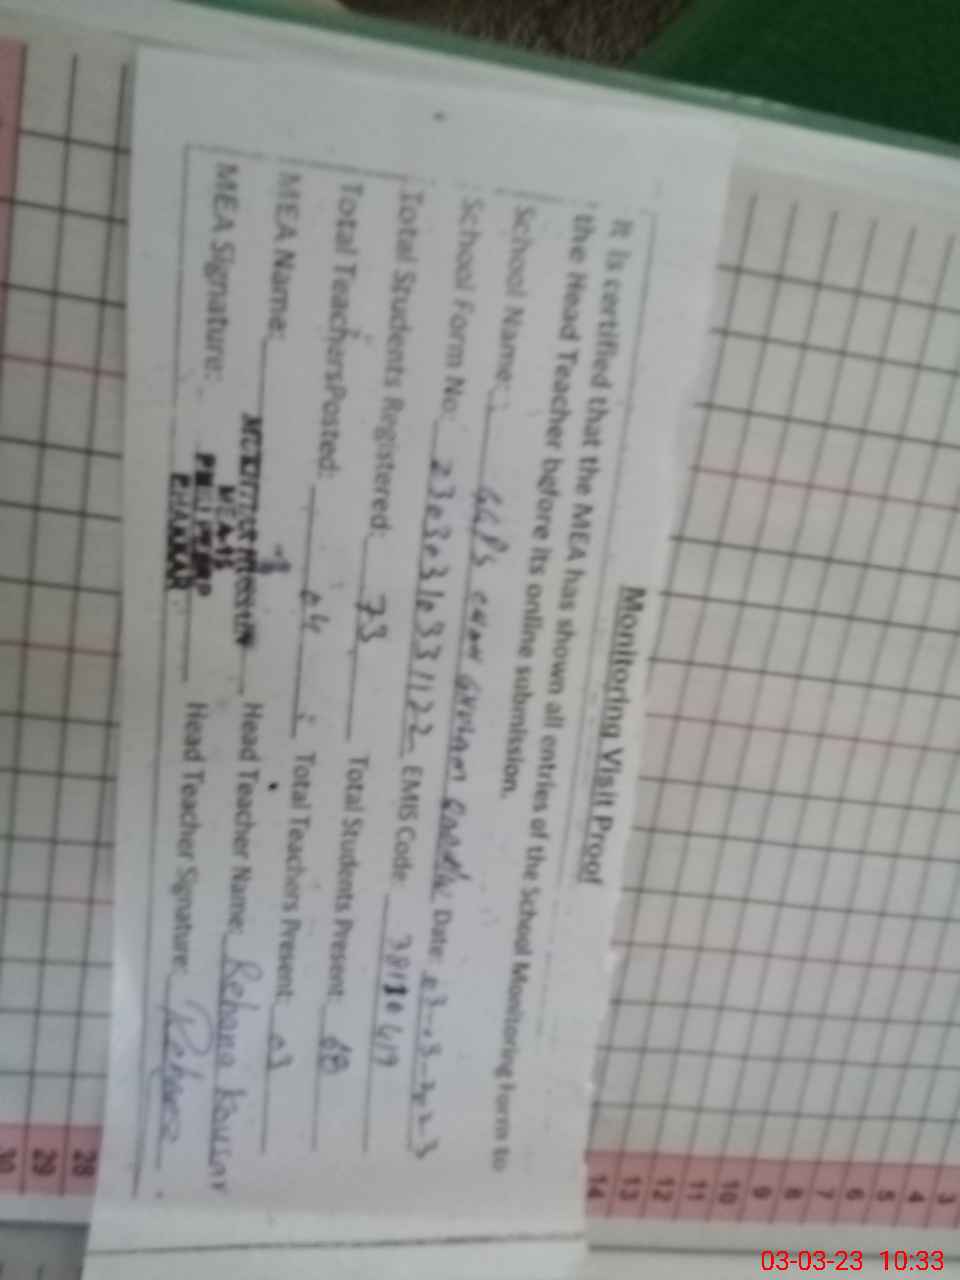 Monitoring Visit Proof
It is certified that the MEA has shown all entries of the School Monitoring Form to
the Head Teacher before its online submission.
School Name: GGPS Date: 03-03-2023
School Form No: 23e3e31e331122 EMIS Code: 3811e419
Total Students Registered: 73 Total Students Present: 68
Total TeachersPosted: 04 Total Teachers Present: 03
MEA Name: Head Teacher Name: Rehana Kousar
MEA Signature: MEA-15 Head Teacher Signature: Rehana
3
4
5
6
7
8
9
10
11
12
13
14
28
29
30
03-03-23 10:33